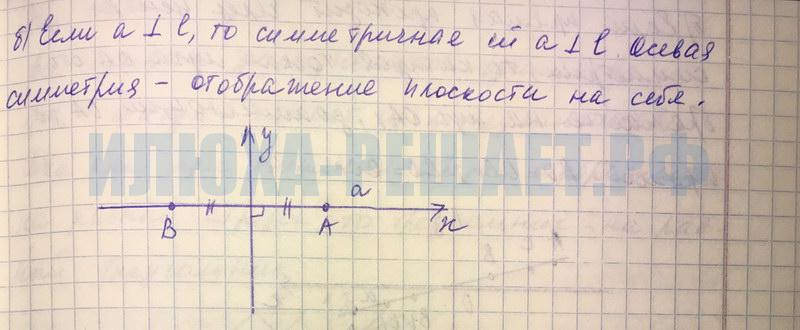 б) Если a ⊥ l, то симметричная ей a ⊥ l. Осевая
симметрия – отображение плоскости на себя.
y
ИЛЮХА-РЕШАЕТ.РФ
a
B A x